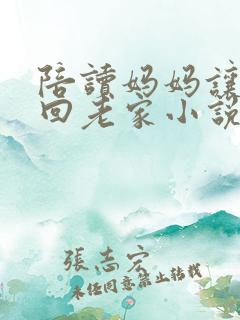 陪讀妈妈讓
回老家小説
張志宏
未经同意禁止转载